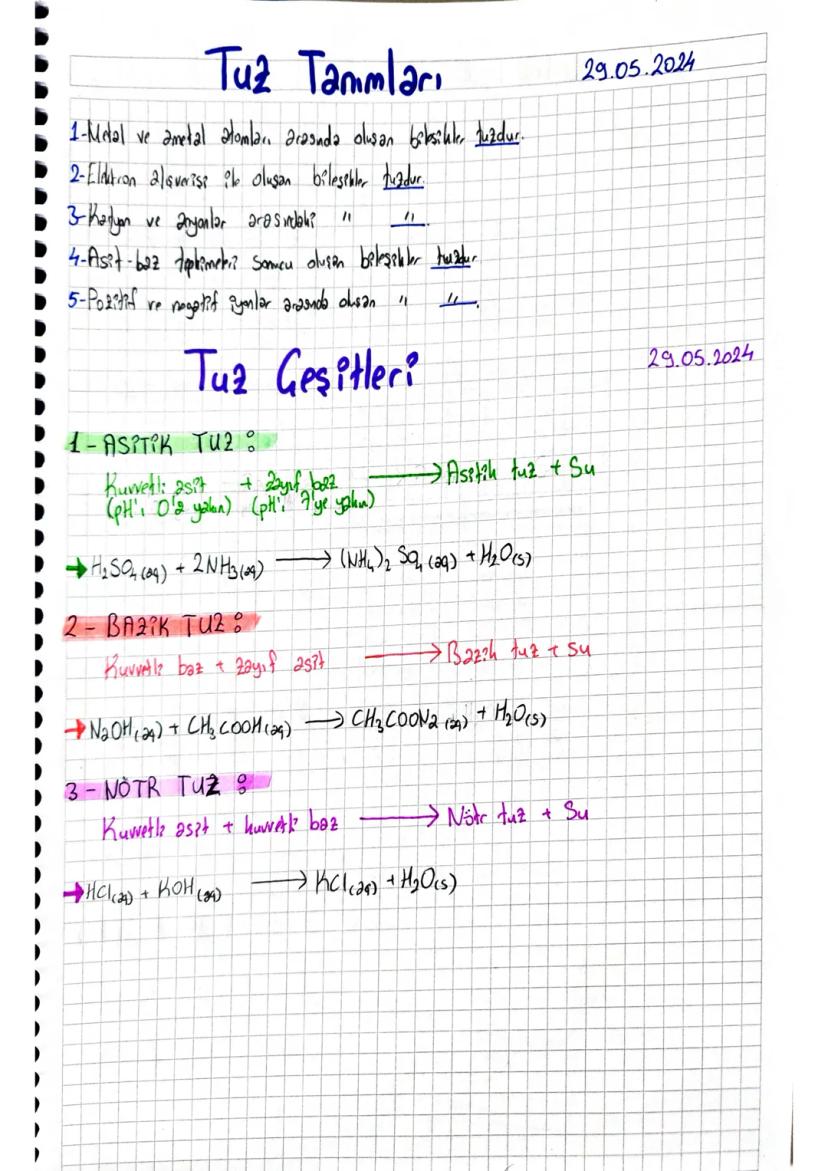 Tuz Tanımları
29.05.2024
1-Metal ve ametal atomları arasında oluşan bileşikler tuzdur.
2-Elektron alışverişi ile oluşan bileşikler tuzdur.
3-Katyon ve anyonlar arasındaki " "
4-Asit-baz tepkimeleri sonucu oluşan bileşikler tuzdur
5-Pozitif ve negatif iyonlar arasında oluşan " "
Tuz Çeşitleri
29.05.2024
1-ASİTİK TUZ:
Kuvvetli asit + zayıf baz → Asitik tuz + Su
(pH'ı 0'a yakın) (pH'ı 7'ye yakın)
→ H₂SO₄(aq) + 2NH₃(aq) → (NH₄)₂ SO₄ (aq) + H₂O(s)
2- BAZİK TUZ:
Kuvvetli baz + zayıf asit → Bazik tuz + Su
→ NaOH(aq) + CH₃COOH(aq) → CH₃COONa (aq) + H₂O(s)
3- NÖTR TUZ:
Kuvvetli asit + kuvvetli baz → Nötr tuz + Su
→ HCl(aq) + KOH(aq) → KCl(aq) + H₂O(s)